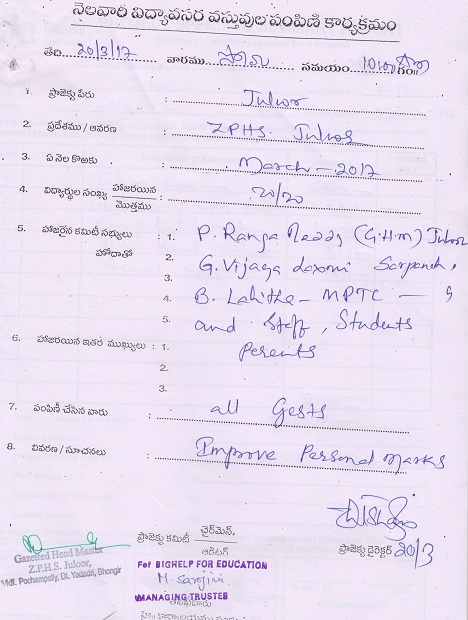 నెలవారి విద్యావసర వస్తువుల పంపిణి కార్యక్రమం
తేది 20/3/17 వారము సోమ సమయం 10:00 గం॥
1. ప్రాజెక్టు పేరు : Juloor
2. ప్రదేశము / ఆవరణ : ZPHS. Juloor
3. ఏ నెల కొఱకు : March - 2017
4. విద్యార్థుల సంఖ్య హాజరయిన / మొత్తము : 20/20
5. హాజరైన కమిటీ సభ్యులు : 1. P. Ranga Reddy (G.H.M) Juloor
హోదాతో 2. G. Vijaya Laxmi Sarpanch,
3.
4. B. Lalitha - MPTC -
5. and Staff, Students
6. హాజరయిన ఇతర ముఖ్యులు : 1. Perents
2.
3.
7. పంపిణీ చేసిన వారు : all Gests
8. వివరణ / సూచనలు : Improve Personal Marks
ప్రాజెక్టు కమిటీ ఛైర్మెన్,
ఆడిటర్
ప్రాజెక్టు డైరెక్టర్ 20/3
Gazetted Head Master
Z.P.H.S. Juloor,
Mdl. Pochampally, Dt. Yadadri, Bhongir
For BIGHELP FOR EDUCATION
M. Sarojini
MANAGING TRUSTEE